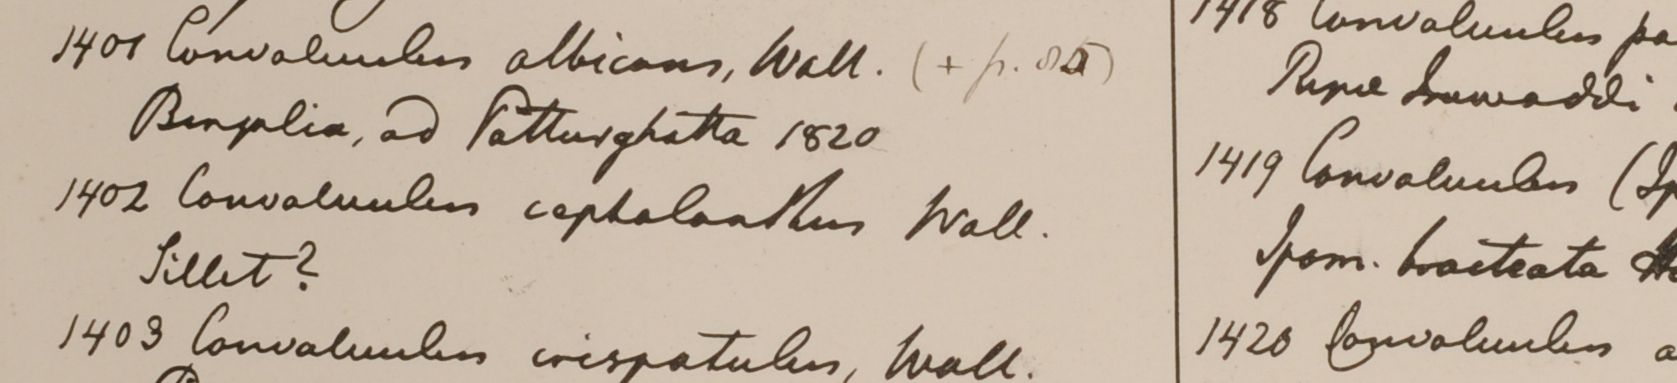 1401 Convolvulus albicans, Wall. (+ p. 85)
Bengalia, ad Patturghatta 1820
1402 Convolvulus cephalanthus Wall.
Sillet?
1403 Convolvulus crispatulus, Wall.
1418 Convolvulus pa
Ripae Irrawaddi
1419 Convolvulus (Ip
Ipom. bracteata
1420 Convolvulus a